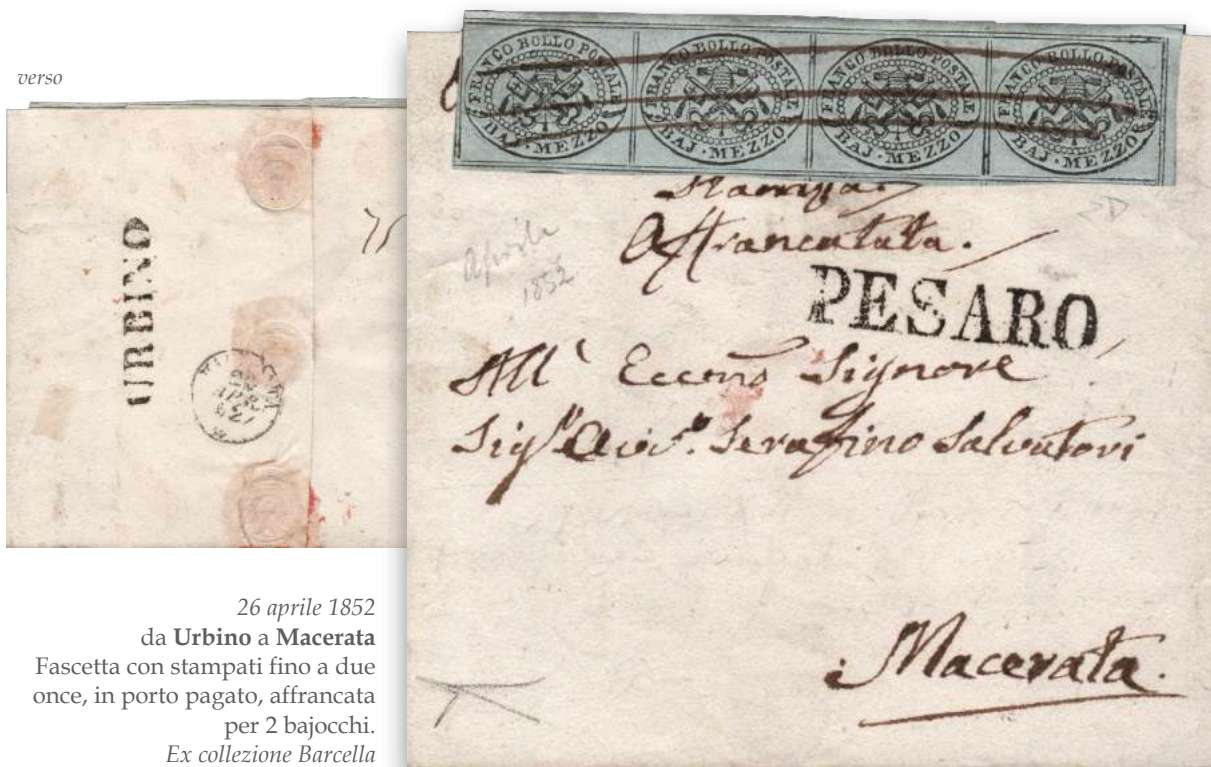 verso
URBINO
APR
FRANCO BOLLO POSTALE
BAJ · MEZZO
FRANCO BOLLO POSTALE
BAJ · MEZZO
FRANCO BOLLO POSTALE
BAJ · MEZZO
FRANCO BOLLO POSTALE
BAJ · MEZZO
Stampa
Affrancatata.
aprile
1852
PESARO
All' Eccmo Signore
Sigr Avvo Serafino Salvatori
Macerata.
26 aprile 1852
da Urbino a Macerata
Fascetta con stampati fino a due
once, in porto pagato, affrancata
per 2 bajocchi.
Ex collezione Barcella